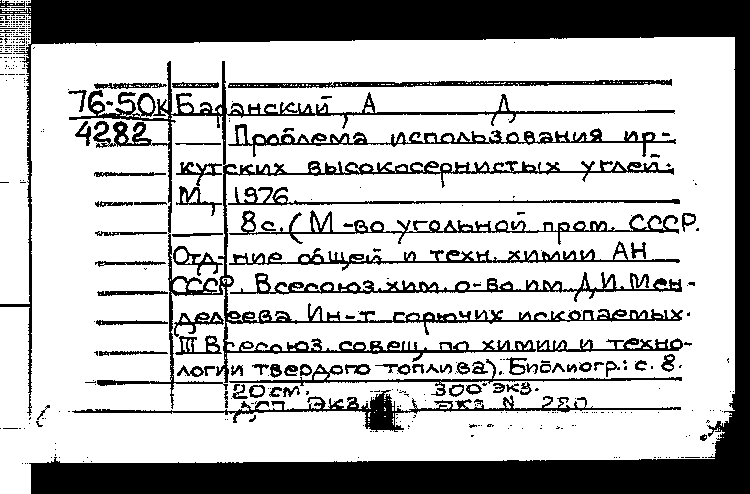 76-50к Баранский, А Д
4282 Проблема использования ир-
кутских высокосернистых углей.
М., 1976
8с. (М-во угольной пром. СССР.
Отд-ние общей и техн. химии АН
СССР. Всесоюз. хим. о-во им. Д.И. Мен-
делеева. Ин-т горючих ископаемых.
III Всесоюз. совещ. по химии и техно-
логии твердого топлива). Библиогр.: с. 8.
20 см. 300 экз.
ДСП. экз. экз N 280